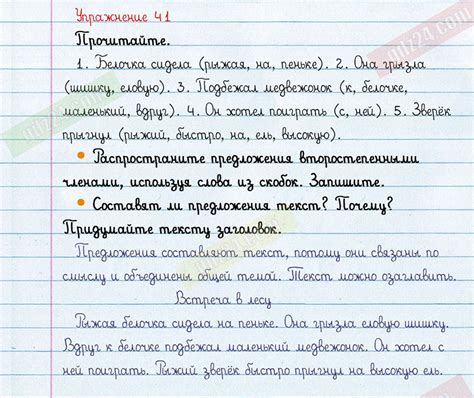 Упражнение 41
Прочитайте.
1. Белочка сидела (рыжая, на, пеньке). 2. Она грызла
(шишку, еловую). 3. Подбежал медвежонок (к, белочке,
маленький, вдруг). 4. Он хотел поиграть (с, ней). 5. Зверёк
прыгнул (рыжий, быстро, на, ель, высокую).
• Распространите предложения второстепенными
членами, используя слова из скобок. Запишите.
• Составят ли предложения текст? Почему?
Придумайте тексту заголовок.
Предложения составляют текст, потому они связаны по
смыслу и объединены общей темой. Текст можно озаглавить.
Встреча в лесу
Рыжая белочка сидела на пеньке. Она грызла еловую шишку.
Вдруг к белочке подбежал маленький медвежонок. Он хотел с
ней поиграть. Рыжий зверёк быстро прыгнул на высокую ель.